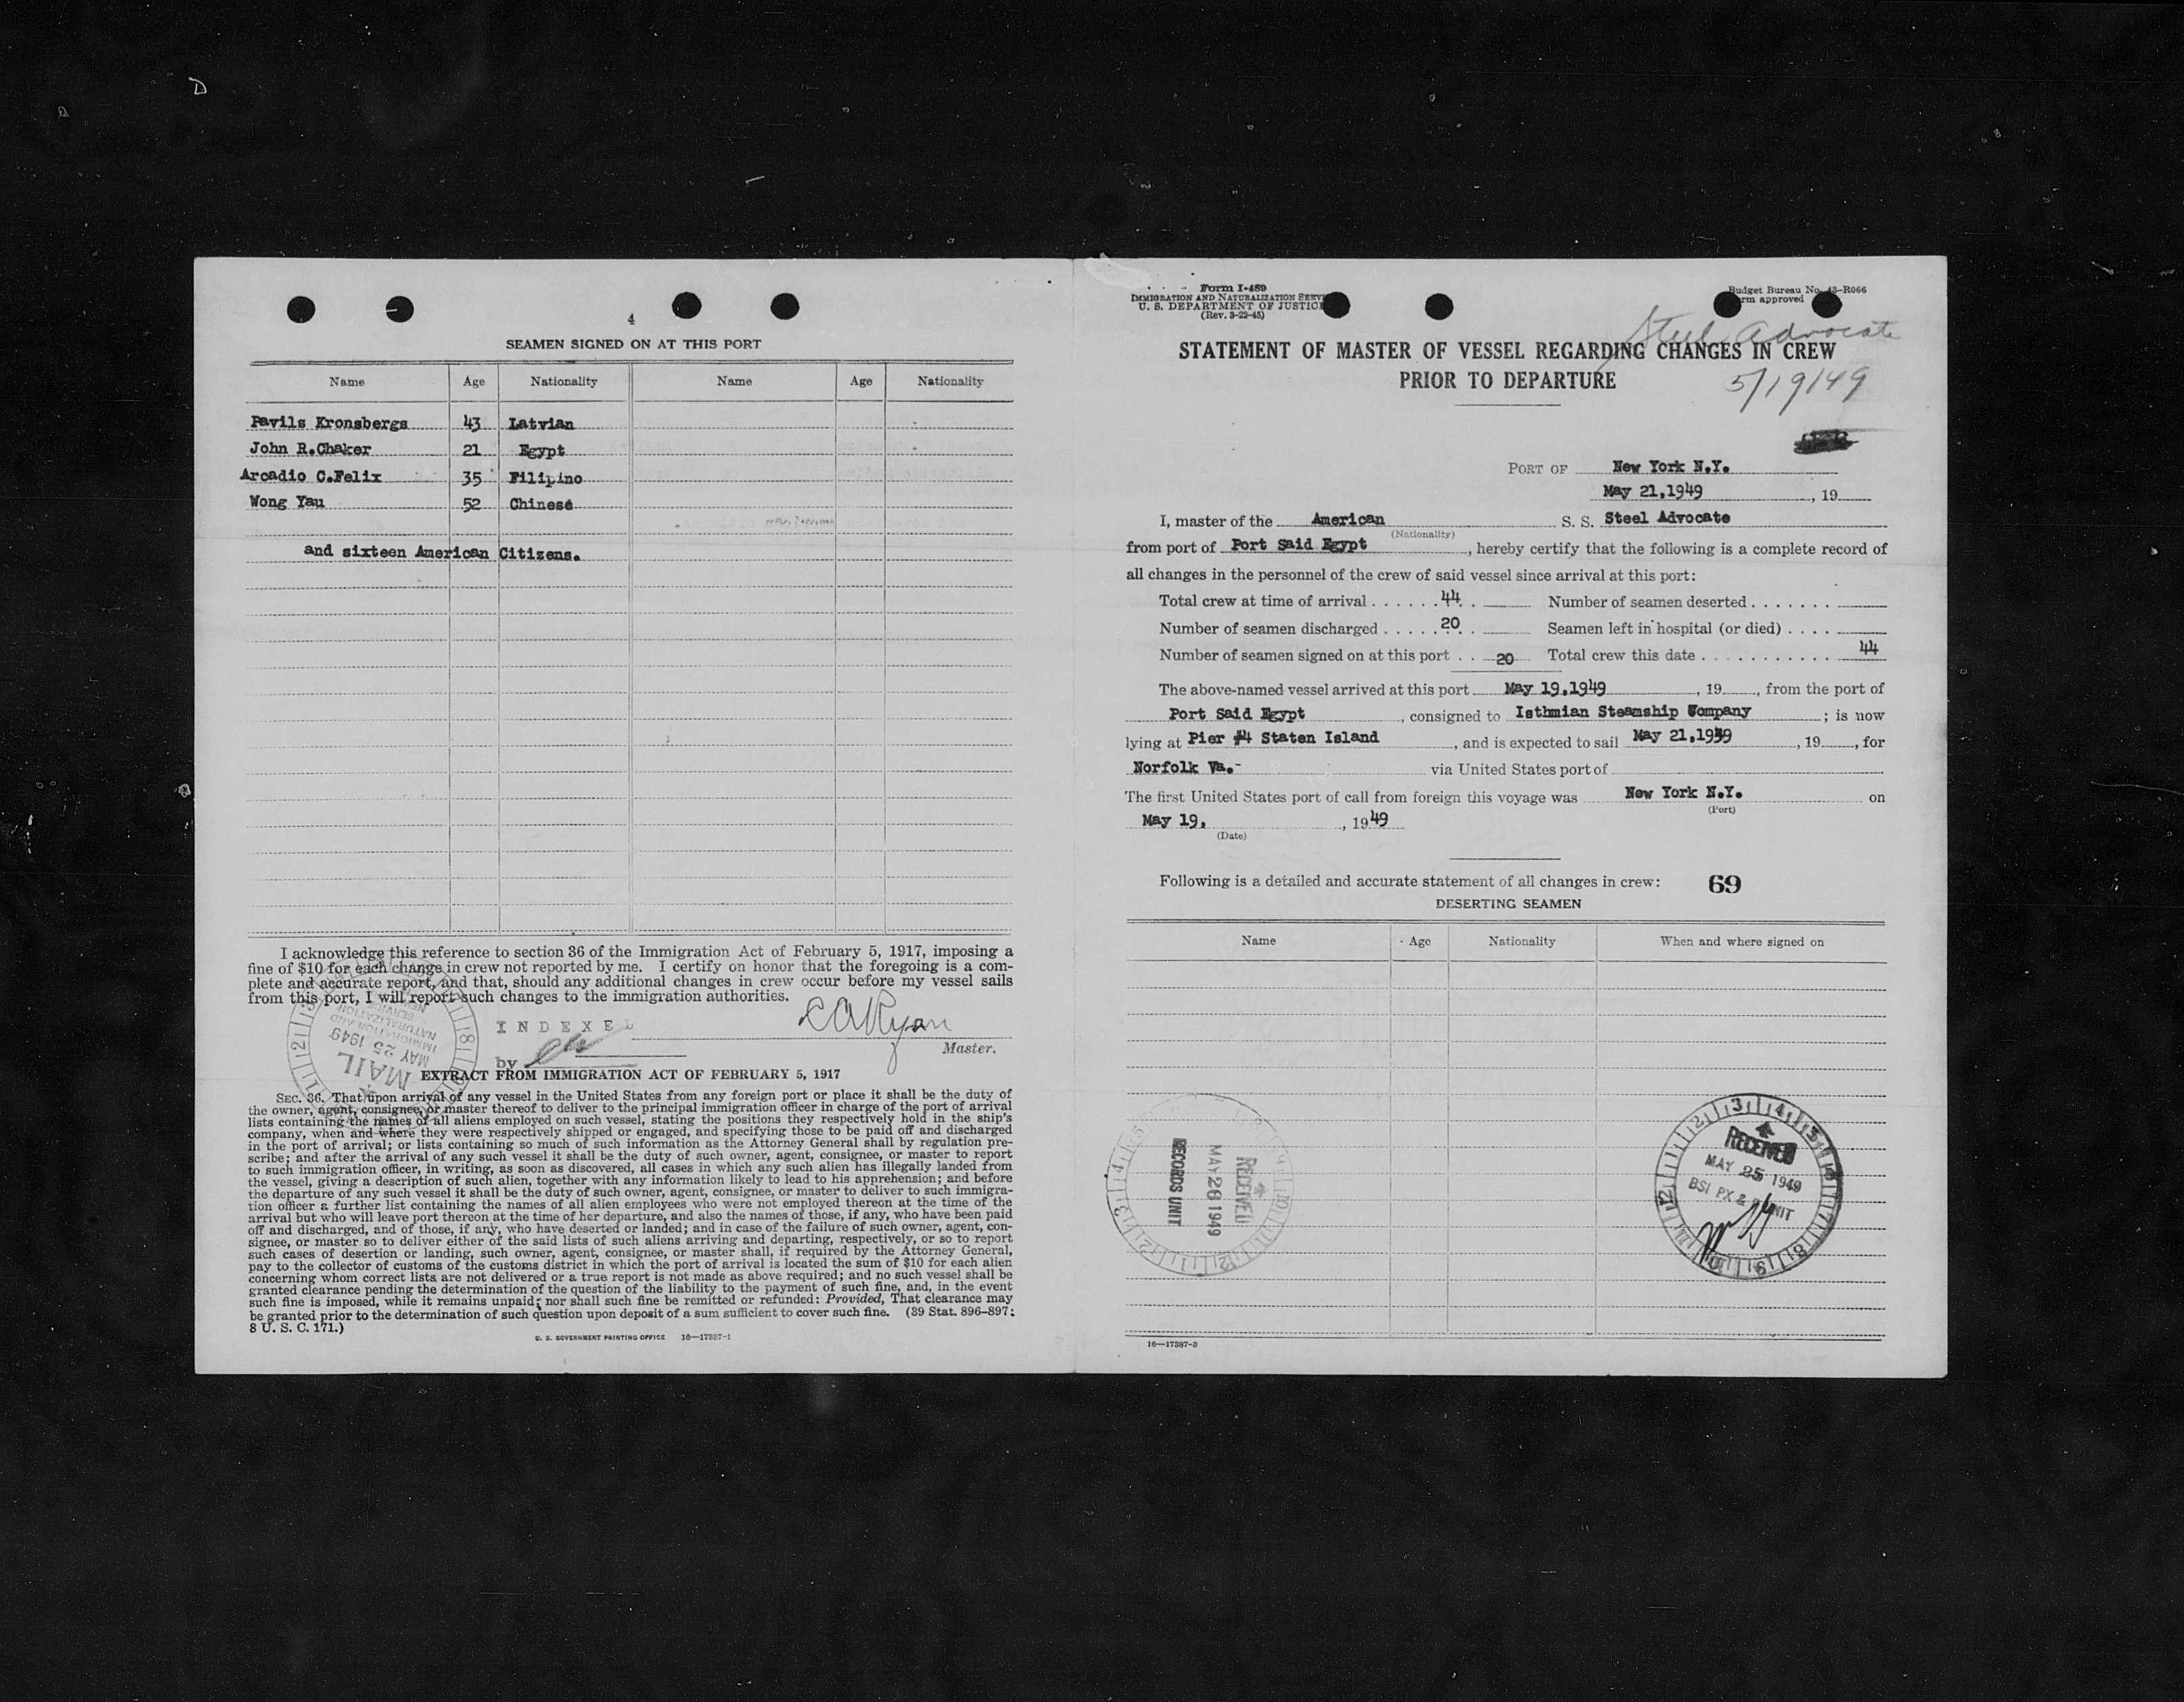 4
SEAMEN SIGNED ON AT THIS PORT
Name Age Nationality Name Age Nationality
Pavils Kronsbergs 43 Latvian
John R.Chaker 21 Egypt
Arcadio C.Felix 35 Filipino
Wong Yau 52 Chinese
and sixteen American Citizens.
I acknowledge this reference to section 36 of the Immigration Act of February 5, 1917, imposing a
fine of $10 for each change in crew not reported by me. I certify on honor that the foregoing is a com-
plete and accurate report, and that, should any additional changes in crew occur before my vessel sails
from this port, I will report such changes to the immigration authorities.
INDEXED
by
Master.
MAIL
MAY 25 1949
IMMIGRATION AND
NATURALIZATION
SERVICE
EXTRACT FROM IMMIGRATION ACT OF FEBRUARY 5, 1917
SEC. 36. That upon arrival of any vessel in the United States from any foreign port or place it shall be the duty of
the owner, agent, consignee, or master thereof to deliver to the principal immigration officer in charge of the port of arrival
lists containing the names of all aliens employed on such vessel, stating the positions they respectively hold in the ship's
company, when and where they were respectively shipped or engaged, and specifying those to be paid off and discharged
in the port of arrival; or lists containing so much of such information as the Attorney General shall by regulation pre-
scribe; and after the arrival of any such vessel it shall be the duty of such owner, agent, consignee, or master to report
to such immigration officer, in writing, as soon as discovered, all cases in which any such alien has illegally landed from
the vessel, giving a description of such alien, together with any information likely to lead to his apprehension; and before
the departure of any such vessel it shall be the duty of such owner, agent, consignee, or master to deliver to such immigra-
tion officer a further list containing the names of all alien employees who were not employed thereon at the time of the
arrival but who will leave port thereon at the time of her departure, and also the names of those, if any, who have been paid
off and discharged, and of those, if any, who have deserted or landed; and in case of the failure of such owner, agent, con-
signee, or master so to deliver either of the said lists of such aliens arriving and departing, respectively, or so to report
such cases of desertion or landing, such owner, agent, consignee, or master shall, if required by the Attorney General,
pay to the collector of customs of the customs district in which the port of arrival is located the sum of $10 for each alien
concerning whom correct lists are not delivered or a true report is not made as above required; and no such vessel shall be
granted clearance pending the determination of the question of the liability to the payment of such fine, and, in the event
such fine is imposed, while it remains unpaid; nor shall such fine be remitted or refunded: Provided, That clearance may
be granted prior to the determination of such question upon deposit of a sum sufficient to cover such fine. (39 Stat. 896-897;
8 U. S. C. 171.)
U. S. GOVERNMENT PRINTING OFFICE 16—17387-1
Form I-489
IMMIGRATION AND NATURALIZATION SERV
U. S. DEPARTMENT OF JUSTICE
(Rev. 3-22-45)
Budget Bureau No. 43-R066
rm approved
Steel Advocate
STATEMENT OF MASTER OF VESSEL REGARDING CHANGES IN CREW
PRIOR TO DEPARTURE
5/19/49
PORT OF New York N.Y.
May 21,1949 , 19
I, master of the American S. S. Steel Advocate
(Nationality)
from port of Port Said Egypt , hereby certify that the following is a complete record of
all changes in the personnel of the crew of said vessel since arrival at this port:
Total crew at time of arrival 44 Number of seamen deserted
Number of seamen discharged 20 Seamen left in hospital (or died)
Number of seamen signed on at this port 20 Total crew this date 44
The above-named vessel arrived at this port May 19,1949 , 19 , from the port of
Port Said Egypt , consigned to Isthmian Steamship Company ; is now
lying at Pier #4 Staten Island , and is expected to sail May 21,1949 , 19 , for
Norfolk Va.- via United States port of
The first United States port of call from foreign this voyage was New York N.Y. on
(Port)
May 19, , 1949
(Date)
Following is a detailed and accurate statement of all changes in crew: 69
DESERTING SEAMEN
Name Age Nationality When and where signed on
RECEIVED
MAY 26 1949
RECORDS UNIT
RECEIVED
MAY 25 1949
BSI PX & UNIT
16—17387-3